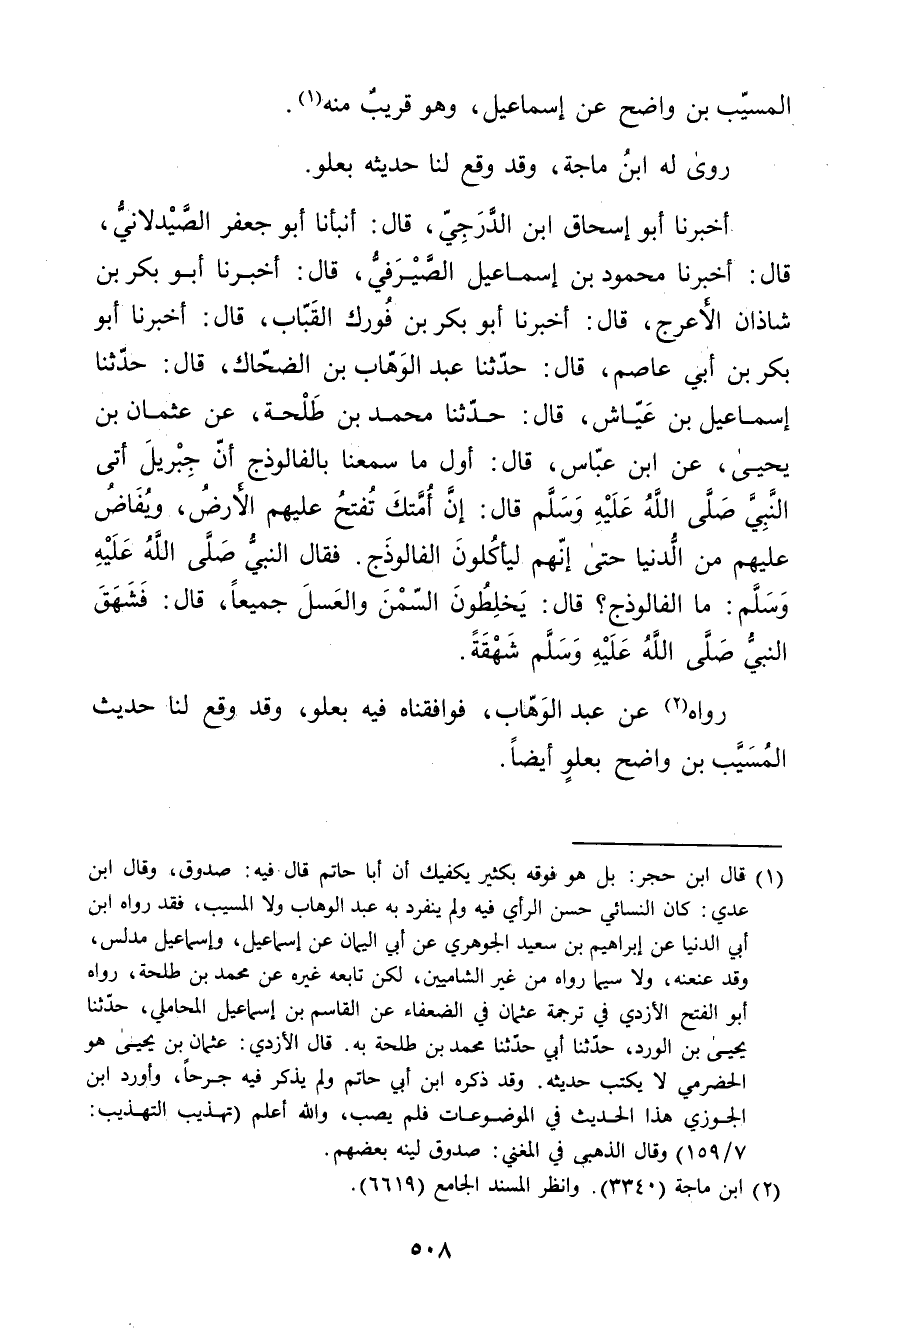 المسيّب بن واضح عن إسماعيل، وهو قريبٌ منه(١).
روىٰ له ابنُ ماجة، وقد وقع لنا حديثه بعلو.
أخبرنا أبو إسحاق ابن الدَّرَجيّ، قال: أنبأنا أبو جعفر الصَّيْدلانيُّ،
قال: أخبرنا محمود بن إسماعيل الصَّيْرَفيُّ، قال: أخبرنا أبو بكر بن
شاذان الأعرج، قال: أخبرنا أبو بكر بن فُورك القَبّاب، قال: أخبرنا أبو
بكر بن أبي عاصم، قال: حدّثنا عبد الوَهّاب بن الضحّاك، قال: حدّثنا
إسماعيل بن عَيّاش، قال: حدّثنا محمد بن طَلْحة، عن عثمان بن
يحيىٰ، عن ابن عبّاس، قال: أول ما سمعنا بالفالوذج أنّ جِبْريلَ أتى
النَّبِيَّ صَلَّى اللَّهُ عَلَيْهِ وَسَلَّم قال: إنَّ أُمَّتكَ تُفتحُ عليهم الأرضُ، ويُفَاضُ
عليهم من الُّدنيا حتىٰ إنّهم ليأكُلونَ الفالوذَج. فقال النبيُّ صَلَّى اللَّهُ عَلَيْهِ
وَسَلَّم: ما الفالوذج؟ قال: يَخلِطُونَ السّمْنَ والعَسلَ جميعاً، قال: فَشَهَقَ
النبيُّ صَلَّى اللَّهُ عَلَيْهِ وَسَلَّم شَهْقَةً.
رواه(٢) عن عبد الوَهّاب، فوافقناه فيه بعلو، وقد وقع لنا حديث
المُسَيَّب بن واضح بعلوٍ أيضاً.
(١) قال ابن حجر: بل هو فوقه بكثير يكفيك أن أبا حاتم قال فيه: صدوق، وقال ابن
عدي: كان النسائي حسن الرأي فيه ولم ينفرد به عبد الوهاب ولا المسيب، فقد رواه ابن
أبي الدنيا عن إبراهيم بن سعيد الجوهري عن أبي اليمان عن إسماعيل، وإسماعيل مدلس،
وقد عنعنه، ولا سيما رواه من غير الشاميين، لكن تابعه غيره عن محمد بن طلحة، رواه
أبو الفتح الأزدي في ترجمة عثمان في الضعفاء عن القاسم بن إسماعيل المحاملي، حدّثنا
يحيىٰ بن الورد، حدّثنا أبي حدّثنا محمد بن طلحة به. قال الأزدي: عثمان بن يحيىٰ هو
الحضرمي لا يكتب حديثه. وقد ذكره ابن أبي حاتم ولم يذكر فيه جرحاً، وأورد ابن
الجوزي هذا الحديث في الموضوعات فلم يصب، والله أعلم (تهذيب التهذيب:
٧/١٥٩) وقال الذهبي في المغني: صدوق لينه بعضهم.
(٢) ابن ماجة (٣٣٤٠). وانظر المسند الجامع (٦٦١٩).
٥٠٨